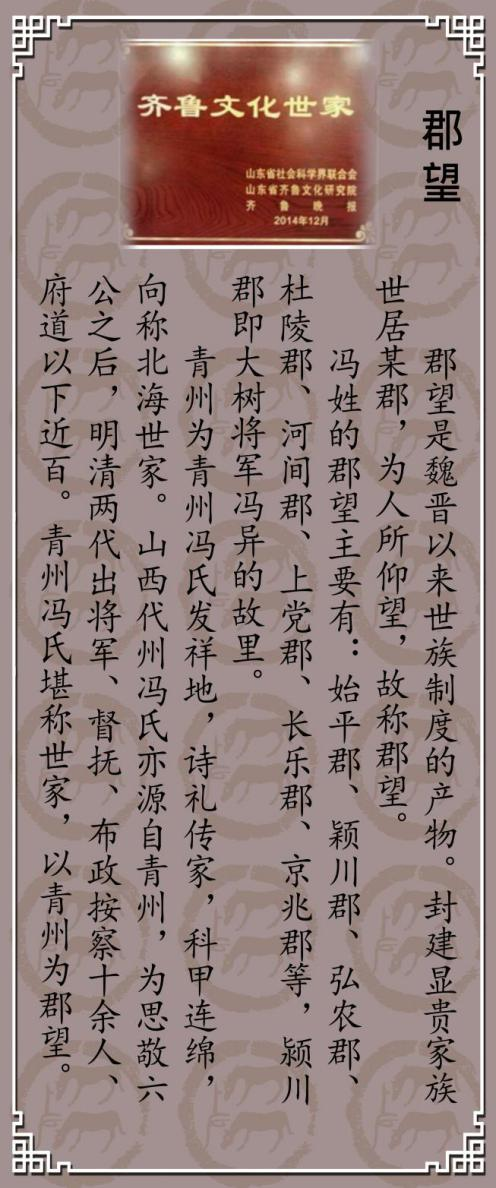 郡望
齐鲁文化世家
山东省社会科学界联合会
山东省齐鲁文化研究院
齐鲁晚报
2014年12月
郡望是魏晋以来世族制度的产物。封建显贵家族
世居某郡，为人所仰望，故称郡望。
冯姓的郡望主要有：始平郡、颍川郡、弘农郡、
杜陵郡、河间郡、上党郡、长乐郡、京兆郡等，颍川
郡即大树将军冯异的故里。
青州为青州冯氏发祥地，诗礼传家，科甲连绵，
向称北海世家。山西代州冯氏亦源自青州，为思敬六
公之后，明清两代出将军、督抚、布政按察十余人、
府道以下近百。青州冯氏堪称世家，以青州为郡望。